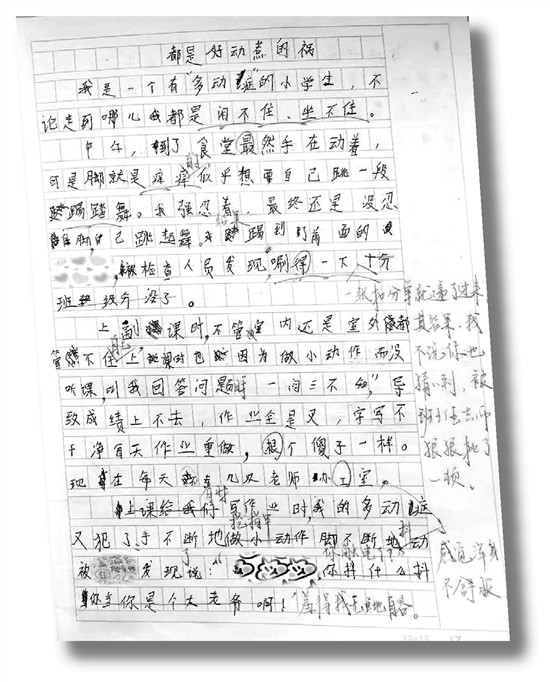 都是好动惹的祸
我是一个有“多动症”的小学生，不
论走到哪儿我都是闲不住、坐不住。
中午，到了食堂虽然手在动着，
可是脚就是痒痒似乎想要自己跳一段
踢踏舞。我强忍着，最终还是没忍
住脚自己跳起舞。踢到了前面的
被检查人员发现，唰得一下十分
班级分没了。
上课时，不管室内还是室外都
管不住自己，上课时也因为做小动作而没
听课，叫我回答问题时“一问三不知”，导
致成绩上不去，作业全是叉，字写不
干净每天作业重做，跟个傻子一样。
现在每天几次老师办公室。
上课给我们写作业时，我的多动症
又犯了手不断地做小动作脚不断地动
被发现说：“你抖什么抖
你当你是个大老爷啊！”羞得我无地自容。
一张扣分单就递了过来
其结果，我
不说你也
猜得到，被
班主任老师
狠狠批了
一顿。
感觉浑身
不舒服